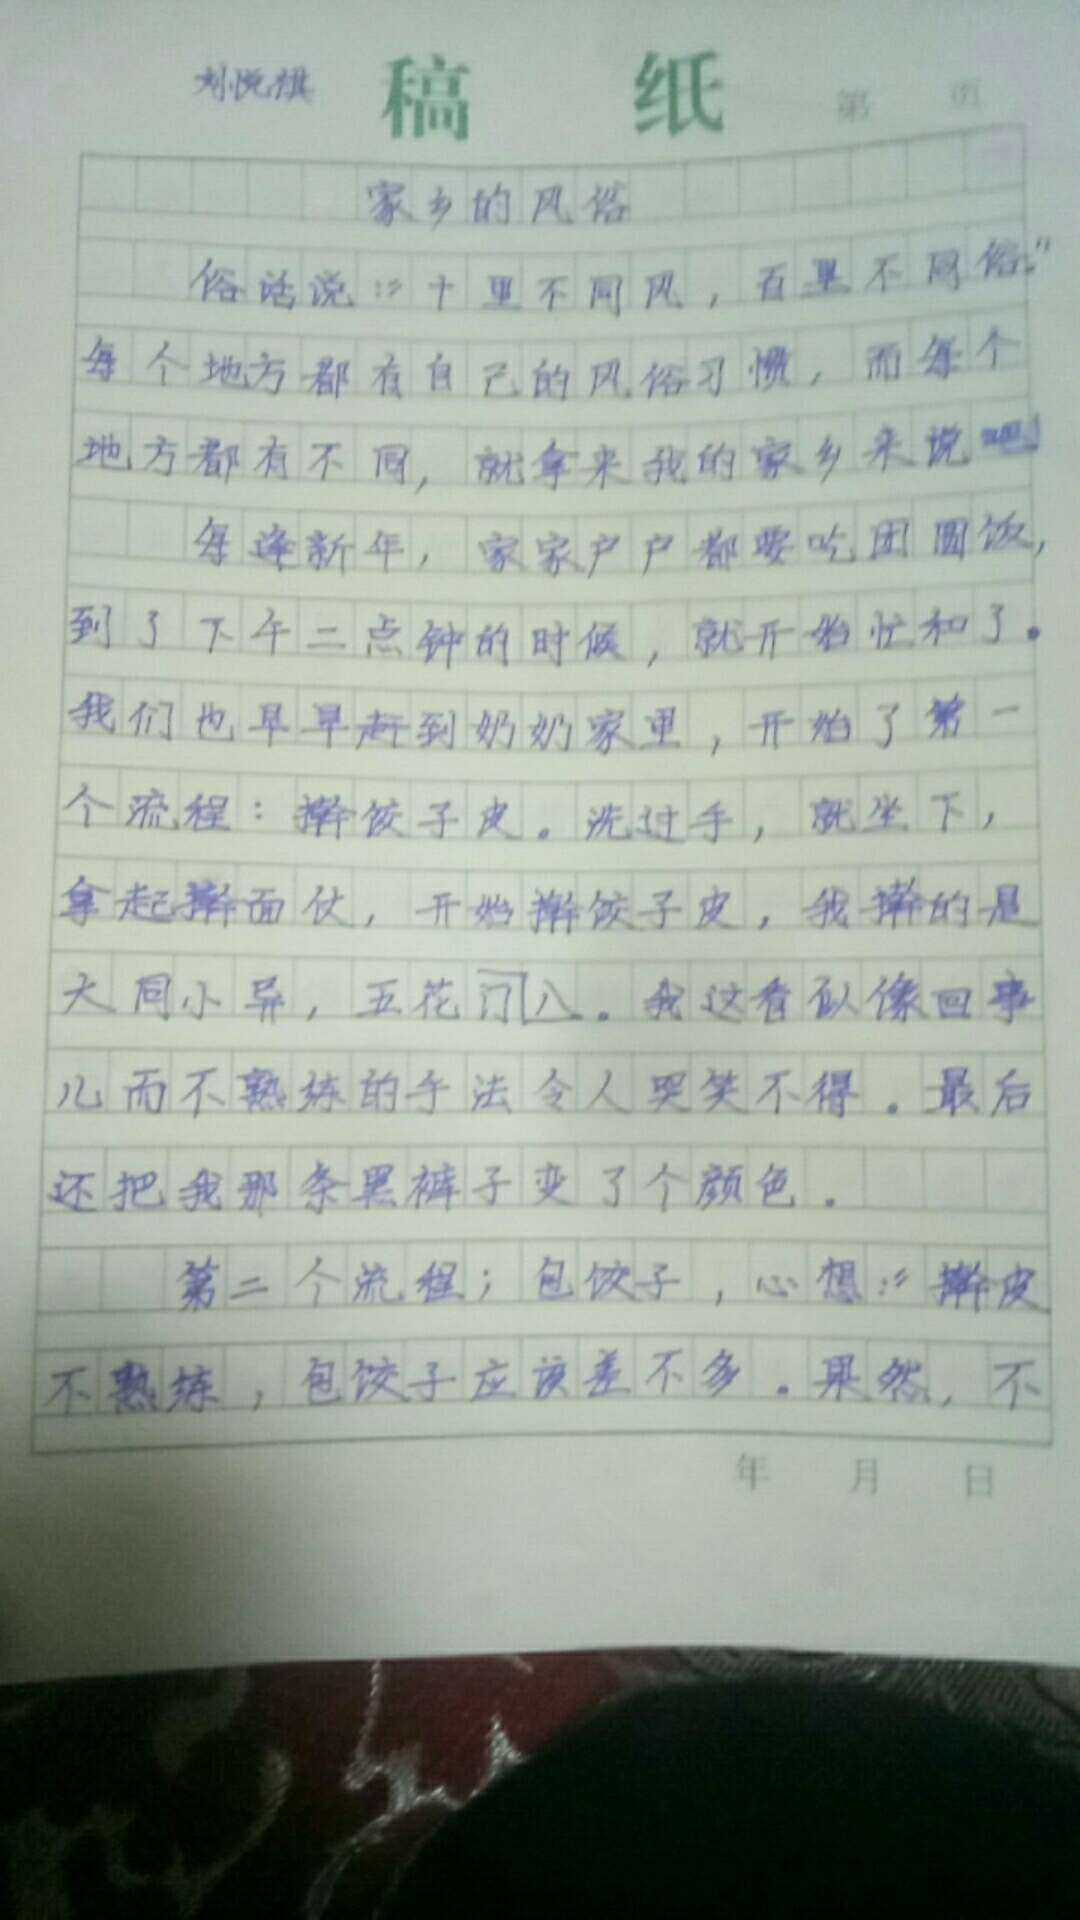 刘悦祺 稿 纸 第 页
家乡的风俗
俗话说:"十里不同风，百里不同俗。"
每个地方都有自己的风俗习惯，而每个
地方都有不同，就拿来我的家乡来说吧!
每逢新年，家家户户都要吃团圆饭，
到了下午二点钟的时候，就开始忙和了。
我们也早早赶到奶奶家里，开始了第一
个流程：擀饺子皮。洗过手，就坐下，
拿起擀面仗，开始擀饺子皮，我擀的是
大同小异，五花门八。我这看似像回事
儿而不熟练的手法令人哭笑不得。最后
还把我那条黑裤子变了个颜色。
第二个流程；包饺子，心想:"擀皮
不熟练，包饺子应该差不多。果然，不
年 月 日